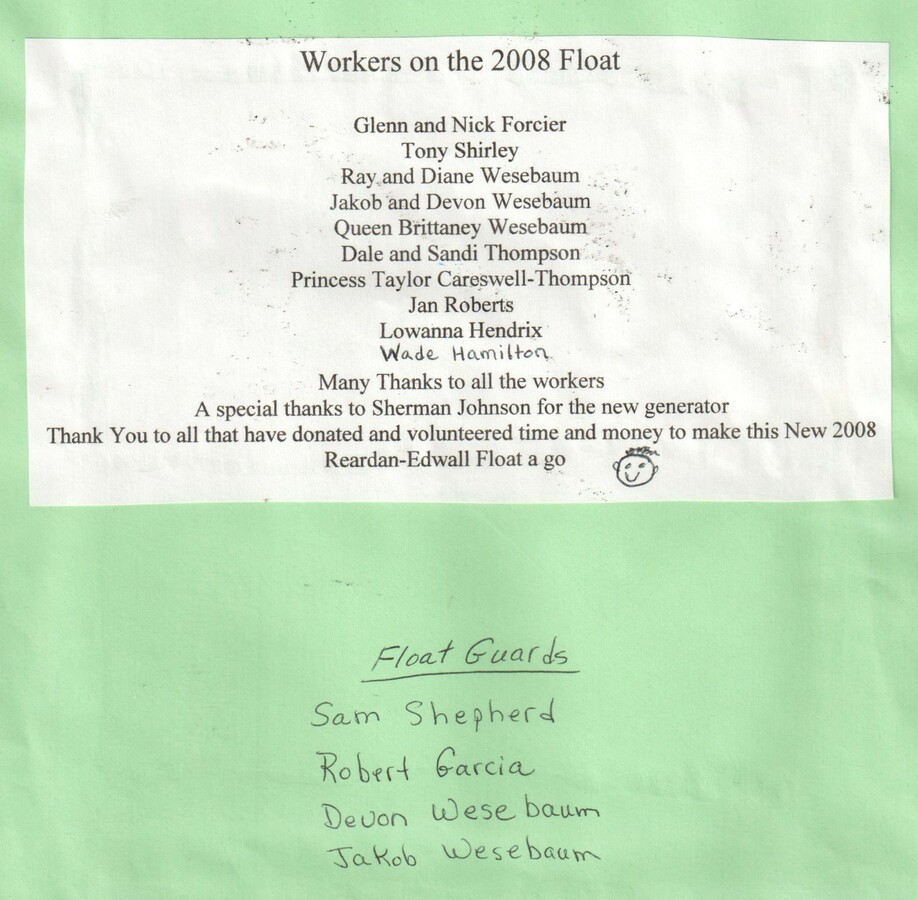 Workers on the 2008 Float
Glenn and Nick Forcier
Tony Shirley
Ray and Diane Wesebaum
Jakob and Devon Wesebaum
Queen Brittaney Wesebaum
Dale and Sandi Thompson
Princess Taylor Careswell-Thompson
Jan Roberts
Lowanna Hendrix
Wade Hamilton
Many Thanks to all the workers
A special thanks to Sherman Johnson for the new generator
Thank You to all that have donated and volunteered time and money to make this New 2008
Reardan-Edwall Float a go
Float Guards
Sam Shepherd
Robert Garcia
Devon Wesebaum
Jakob Wesebaum